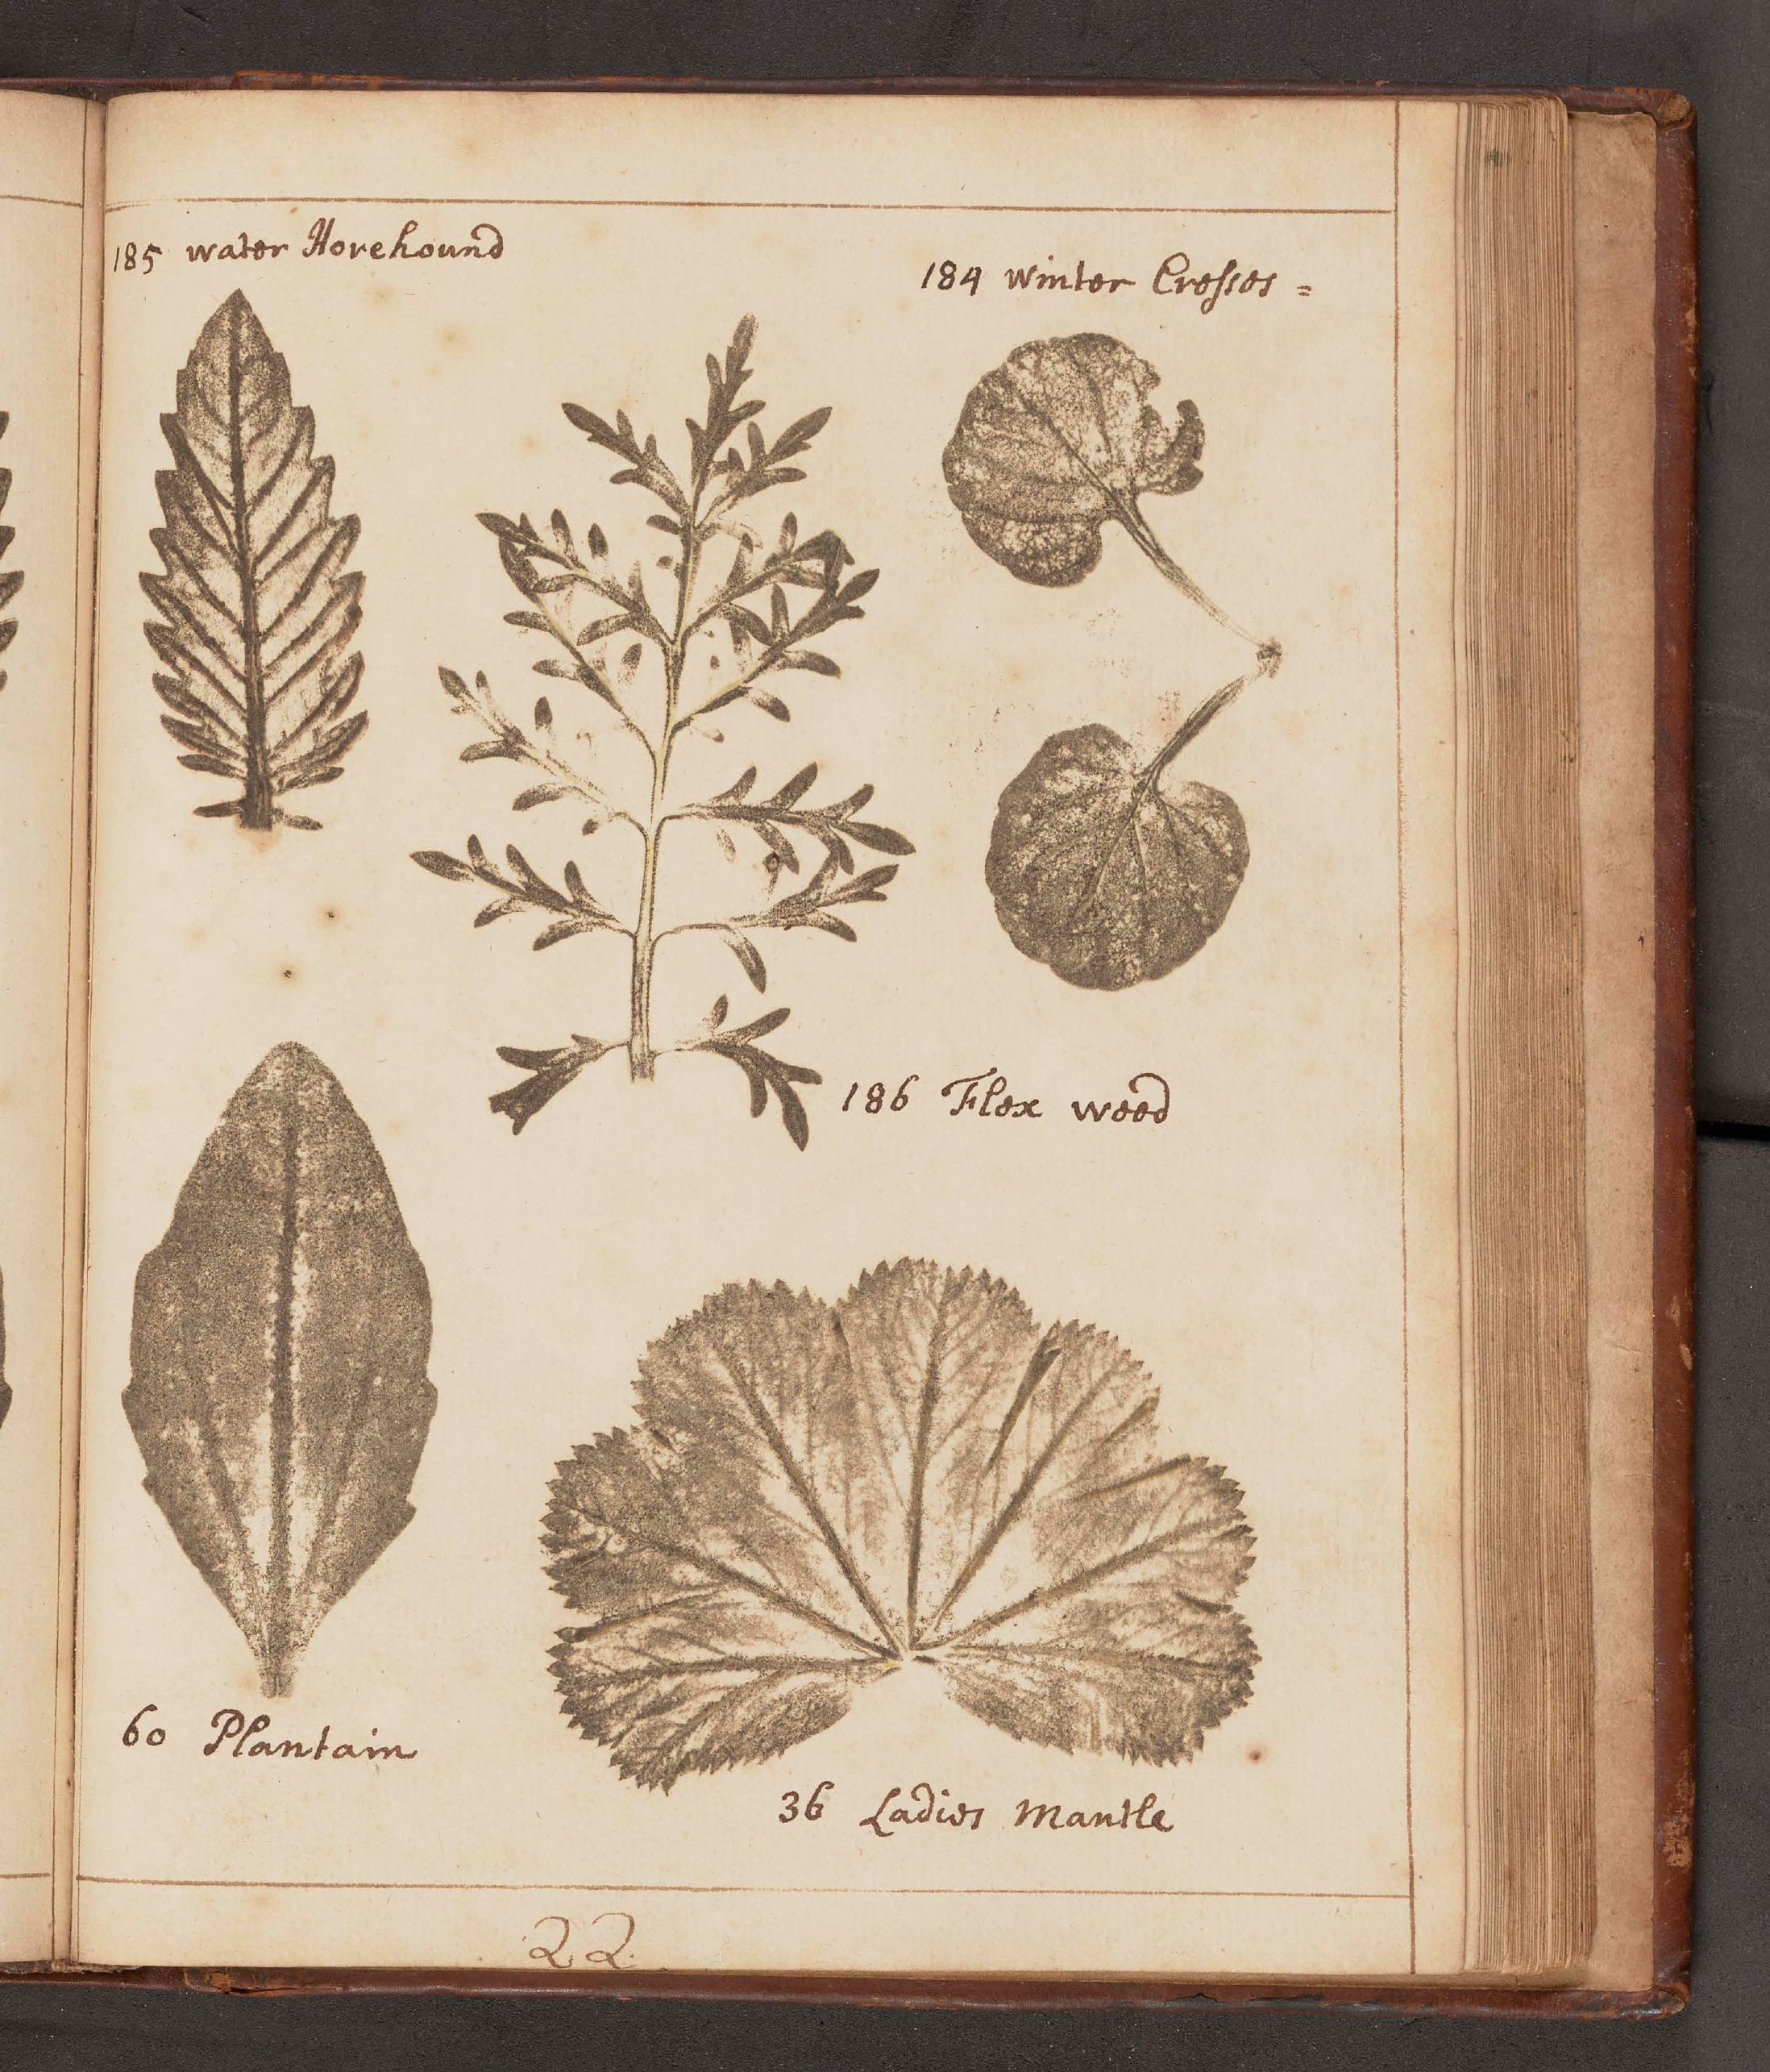 185 water Horehound
184 winter Cresses =
186 Flex weed
60 Plantain
36 Ladies Mantle
22